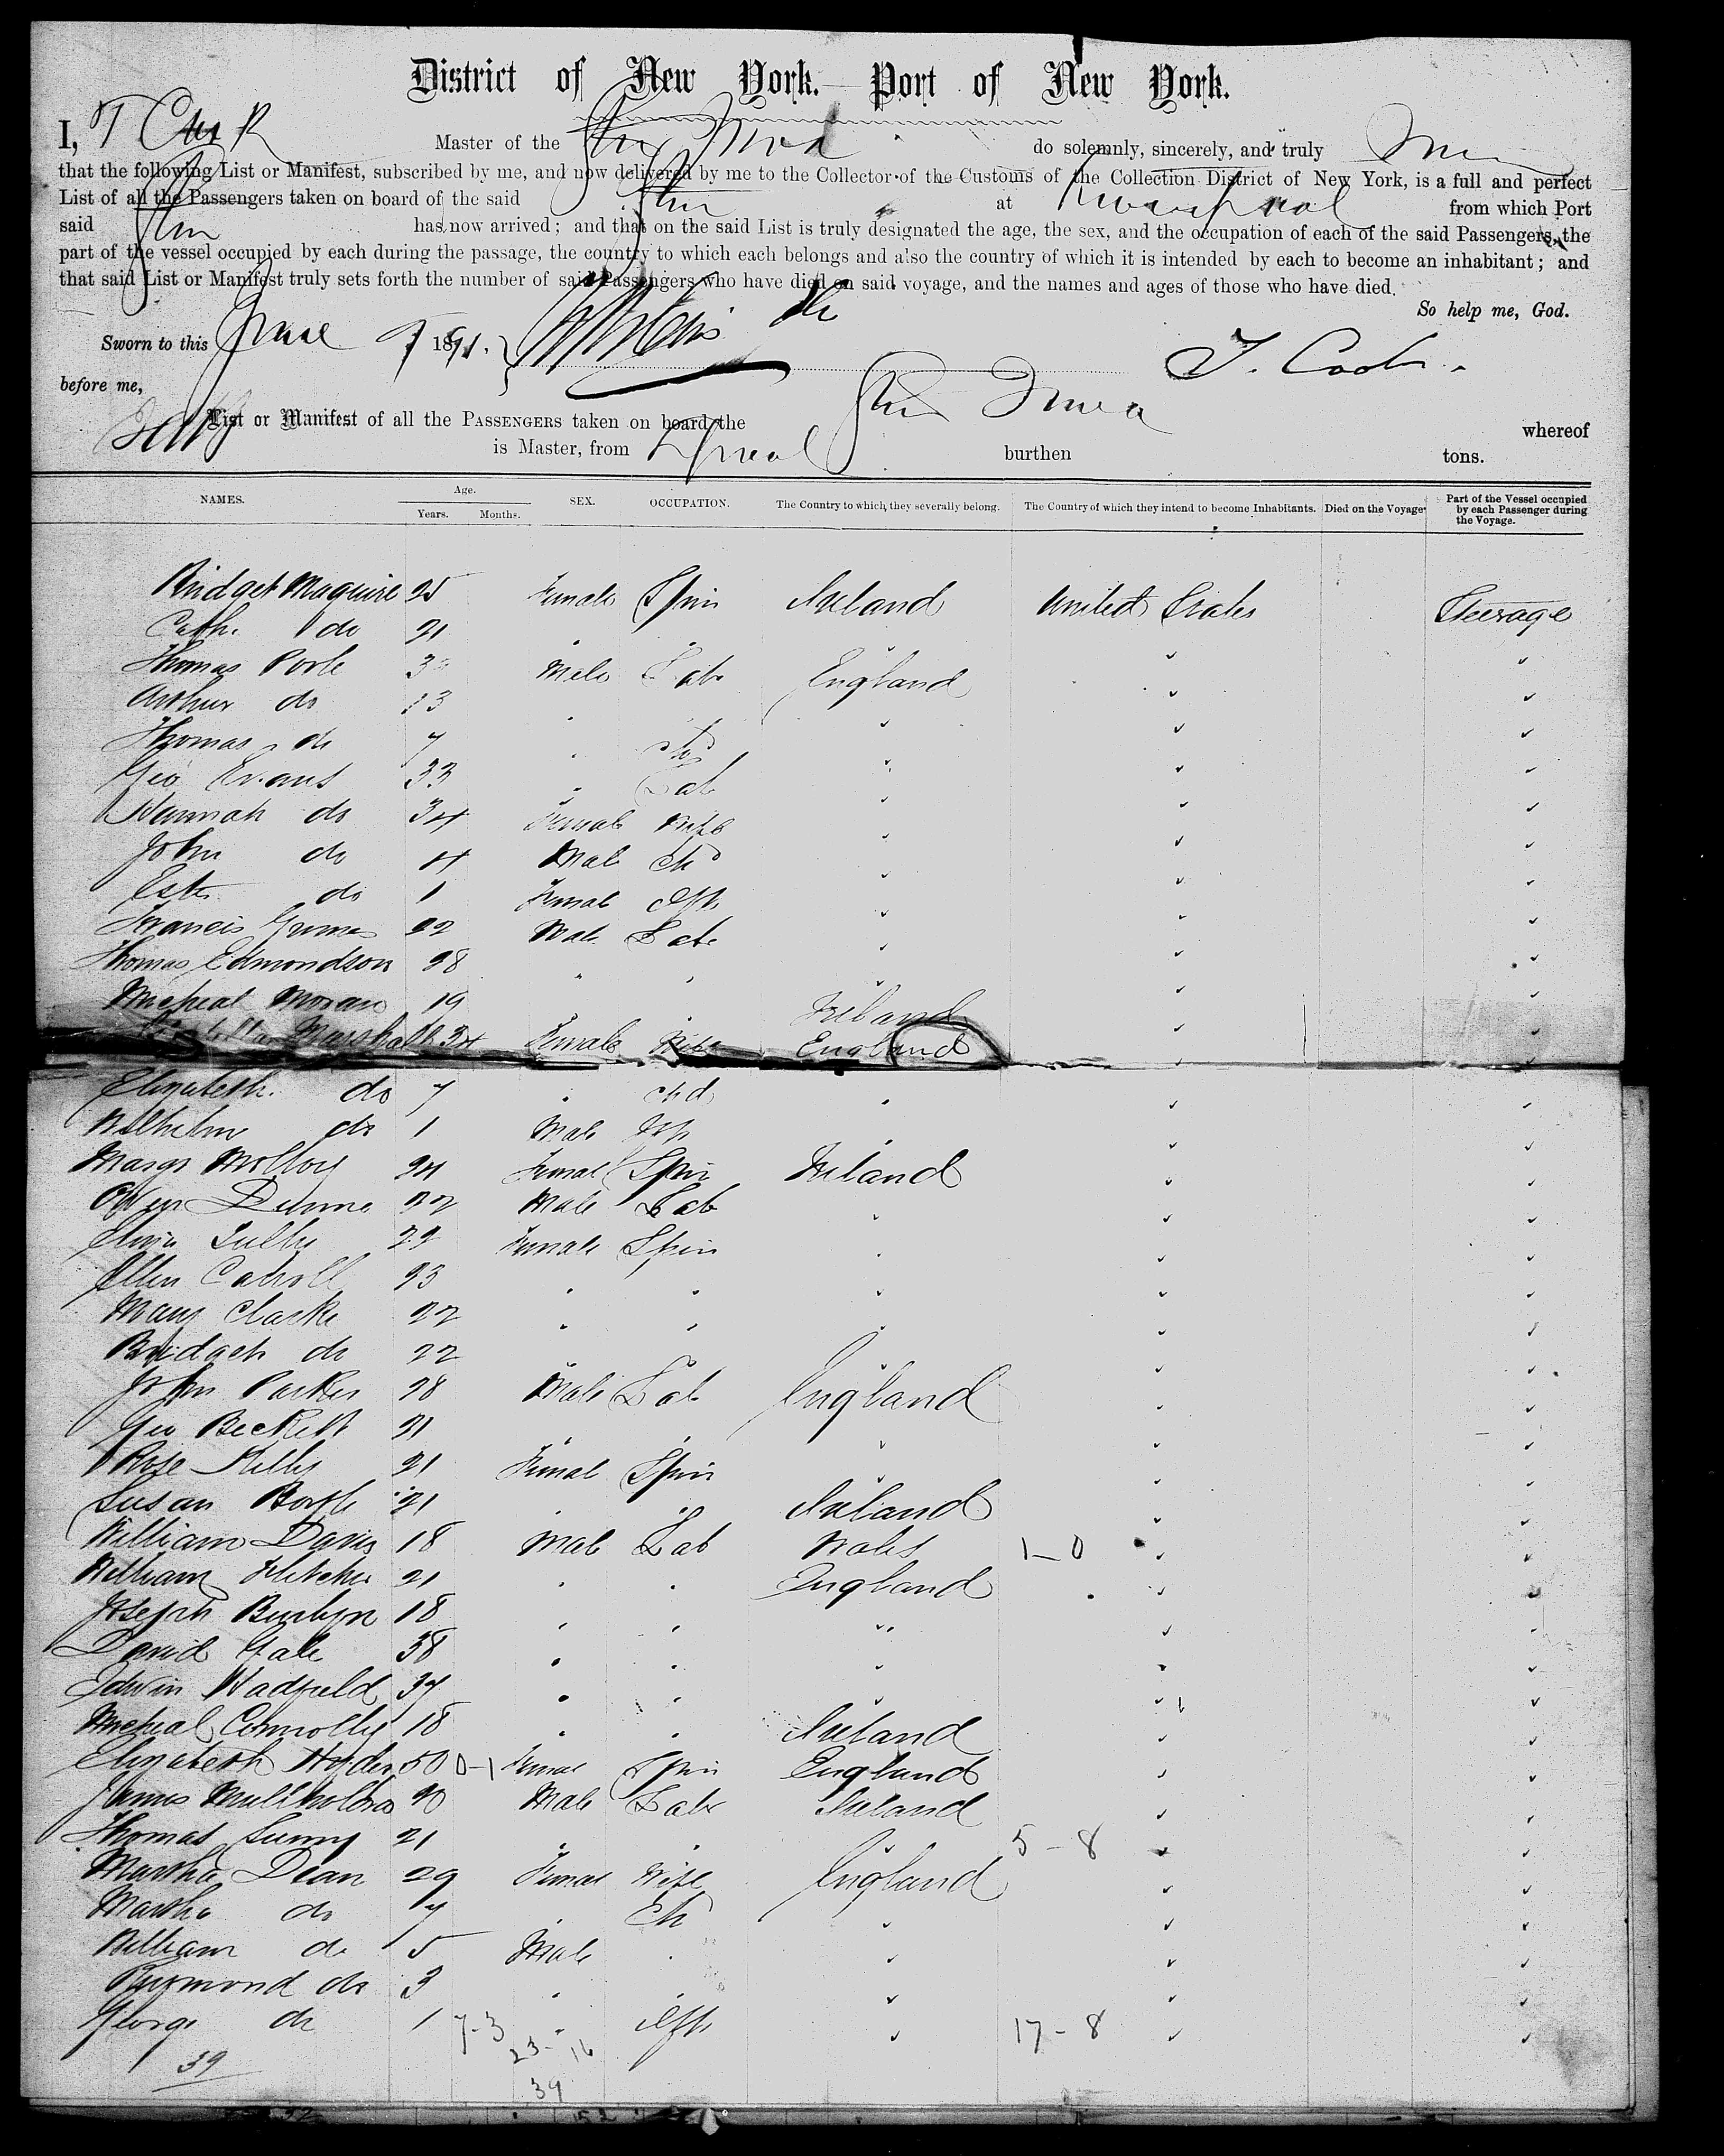 District of New York. Port of New York.
I, T Cook Master of the Str do solemnly, sincerely, and truly
that the following List or Manifest, subscribed by me, and now delivered by me to the Collector of the Customs of the Collection District of New York, is a full and perfect
List of all the Passengers taken on board of the said Str at Liverpool from which Port
said Str has now arrived; and that on the said List is truly designated the age, the sex, and the occupation of each of the said Passengers, the
part of the vessel occupied by each during the passage, the country to which each belongs and also the country of which it is intended by each to become an inhabitant; and
that said List or Manifest truly sets forth the number of said Passengers who have died on said voyage, and the names and ages of those who have died.
So help me, God.
Sworn to this June 9 1891. T. Cook.
before me,
List or Manifest of all the PASSENGERS taken on board the Str whereof
is Master, from Lpool burthen tons.
NAMES. Age. Years. Months. SEX. OCCUPATION. The Country to which they severally belong. The Country of which they intend to become Inhabitants. Died on the Voyage Part of the Vessel occupied by each Passenger during the Voyage.
Bridget Maguire 25 Female Spin Ireland United States Steerage
Cath. do 21 "
Thomas Poole Male Lab England
Arthur do 13 "
Thomas do 7 " Chd
Geo Evans 33 " Lab
Hannah do 34 Female Wife
John do 4 Male Chd
Esth do 1 Female Inft
Francis Grimes 22 Male Lab
Thomas Edmondson 28 " "
Micheal Moran 19 Ireland
Marshall 34 Female Wife England
Elizabeth do 7 " Chd "
Wilhelm do 1 Male Inft "
Margt Molloy 24 Female Spin Ireland
Owen Dunne 22 Male Lab "
Tully 22 Female Spin "
Ellen Carroll 23 " " "
Mary Clarke 22 " " "
Bridget do 22 " " "
John Parker 28 Male Lab England
Geo Beckett 21 " " "
Rose Kelly 21 Female Spin "
Susan Boyle 21 " " Ireland
William Davis 18 Male Lab Wales 1-0
William Fletcher 21 " " England
Joseph 18 " " "
David Gale 38 " " "
Edwin Wadfield 37 " " "
Micheal Connolly 18 " " Ireland
Elizabeth 50 0-1 Female Spin England
James Mullholland 20 Male Lab Ireland
Thomas 21 " " 5-8
Martha Dean 29 Female Wife England
Martha do 7 " Ch "
William do 5 Male " "
Raymond do 3 " " "
George do 1 7-3 " Inft " 17-8
39 23-16
39